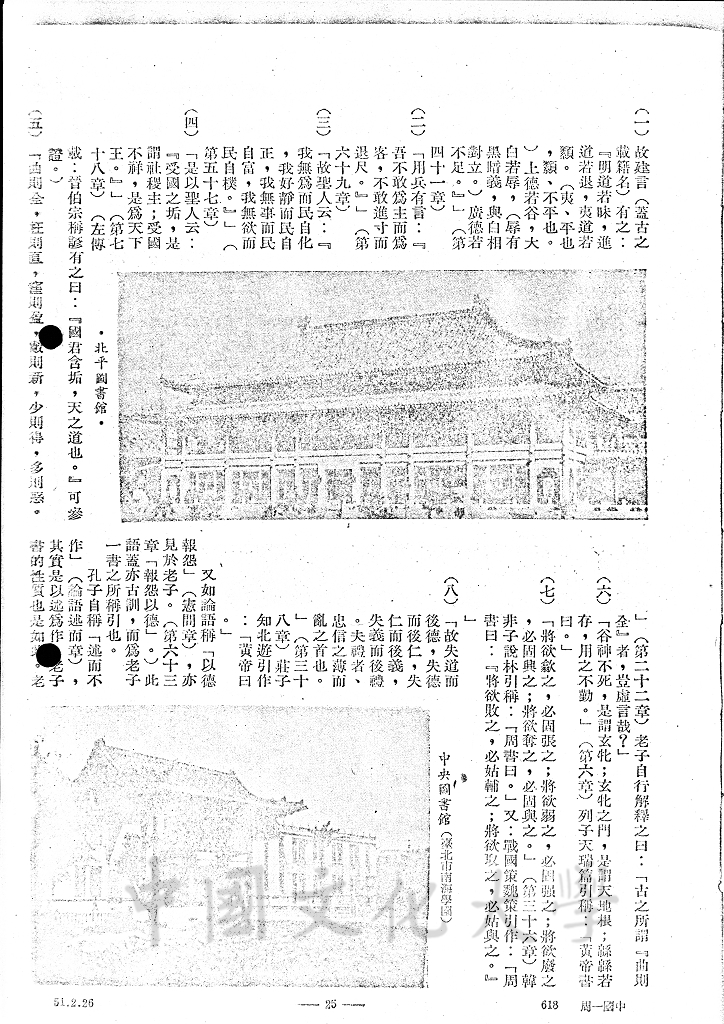 (一)故建言(蓋古之
載籍名)有之:
『明道若昧,進
道若退,夷道若
纇。(夷、平也
,纇、不平也。
)上德若谷,大
白若辱,(辱有
黑暗義,與白相
對立。)廣德若
不足。』」(第
四十一章)
(二)「用兵有言:『
吾不敢爲主而爲
客,不敢進寸而
退尺。』」(第
六十九章)
(三)「故聖人云:『
我無爲而民自化
,我好靜而民自
正,我無事而民
自富,我無欲而
民自樸。』」(
第五十七章)
(四)「是以聖人云:
『受國之垢,是
謂社稷主;受國
不祥,是爲天下
王。』」(第七
十八章)(左傳
載:晉伯宗稱諺有之曰:『國君含垢,天之道也。』可參
證。)
(五)「曲則全,枉則直,窪則盈,敝則新,少則得,多則惑。
•北平圖書館•
」(第二十二章)老子自行解釋之曰:「古之所謂『曲則
全』者,豈虛言哉?」
(六)「谷神不死,是謂玄牝;玄牝之門,是謂天地根;緜緜若
存,用之不勤。」(第六章)列子天瑞篇引稱:「黃帝書
曰。」
(七)「將欲歙之,必固張之;將欲弱之,必固强之;將欲廢之
,必固興之;將欲奪之,必固與之。」(第三十六章)韓
非子說林引稱:「周書曰。」又:戰國策魏策引作:「周
書曰:『將欲敗之,必姑輔之;將欲取之,必姑與之。』
」
(八)「故失道而
後德,失德
而後仁,失
仁而後義,
失義而後禮
。夫禮者、
忠信之薄而
亂之首也。
」(第三十
八章)莊子
知北遊引作
:「黃帝曰
。」
又如論語稱「以德
報怨」(憲問章),亦
見於老子。(第六十三
章「報怨以德」。)此
語蓋亦古訓,而爲老子
一書之所稱引也。
孔子自稱「述而不
作」(論語述而章),
其實是以述爲作。老子
書的性質也是如此。老
中央圖書館(臺北市南海學園)
中國文化大學
51.2.26
—25—
618
中國一周